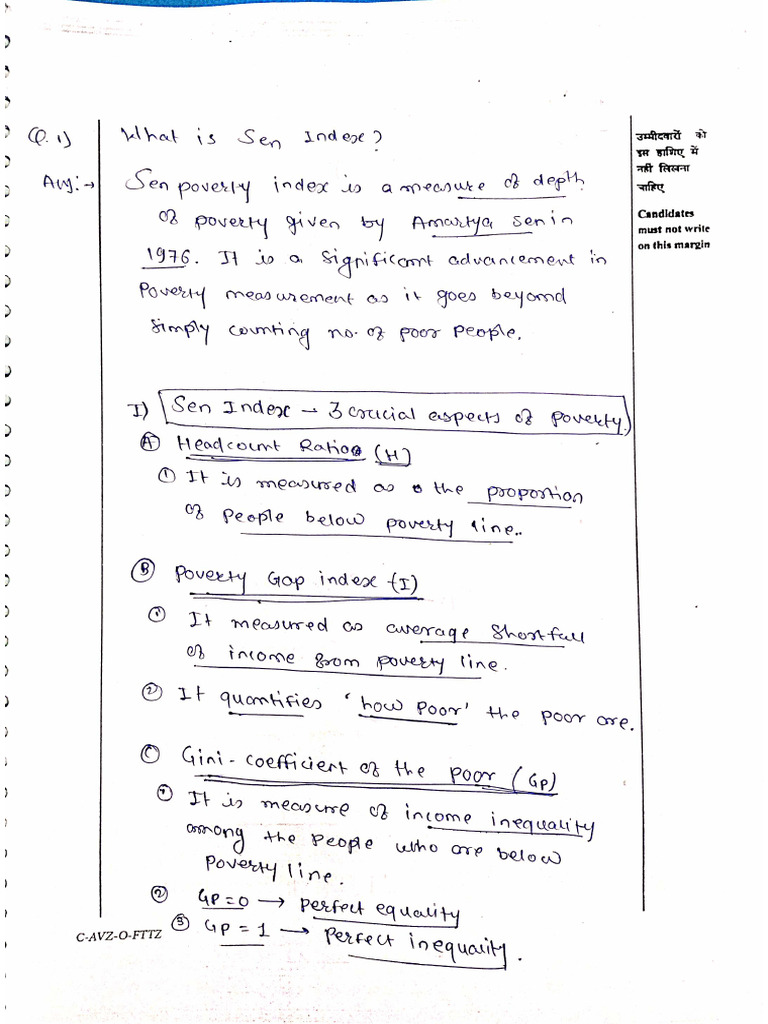 Q.1) What is Sen Index?
Ans:→ Sen poverty index is a measure of depth
of poverty given by Amartya Sen in
1976. It is a significant advancement in
Poverty measurement as it goes beyond
simply counting no. of poor people.
I) Sen Index → 3 crucial aspects of poverty.
(A) Headcount Ratio (H)
① It is measured as the proportion
of people below poverty line..
(B) Poverty Gap index (I)
① It measured as average shortfall
of income from poverty line.
② It quantifies 'how poor' the poor are.
(C) Gini-coefficient of the poor (Gp)
① It is measure of income inequality
among the people who are below
Poverty line.
② Gp=0 → Perfect equality
③ Gp = 1 → Perfect inequality.
उम्मीदवारों को
इस हाशिए में
नहीं लिखना
चाहिए
Candidates
must not write
on this margin
C-AVZ-O-FTTZ